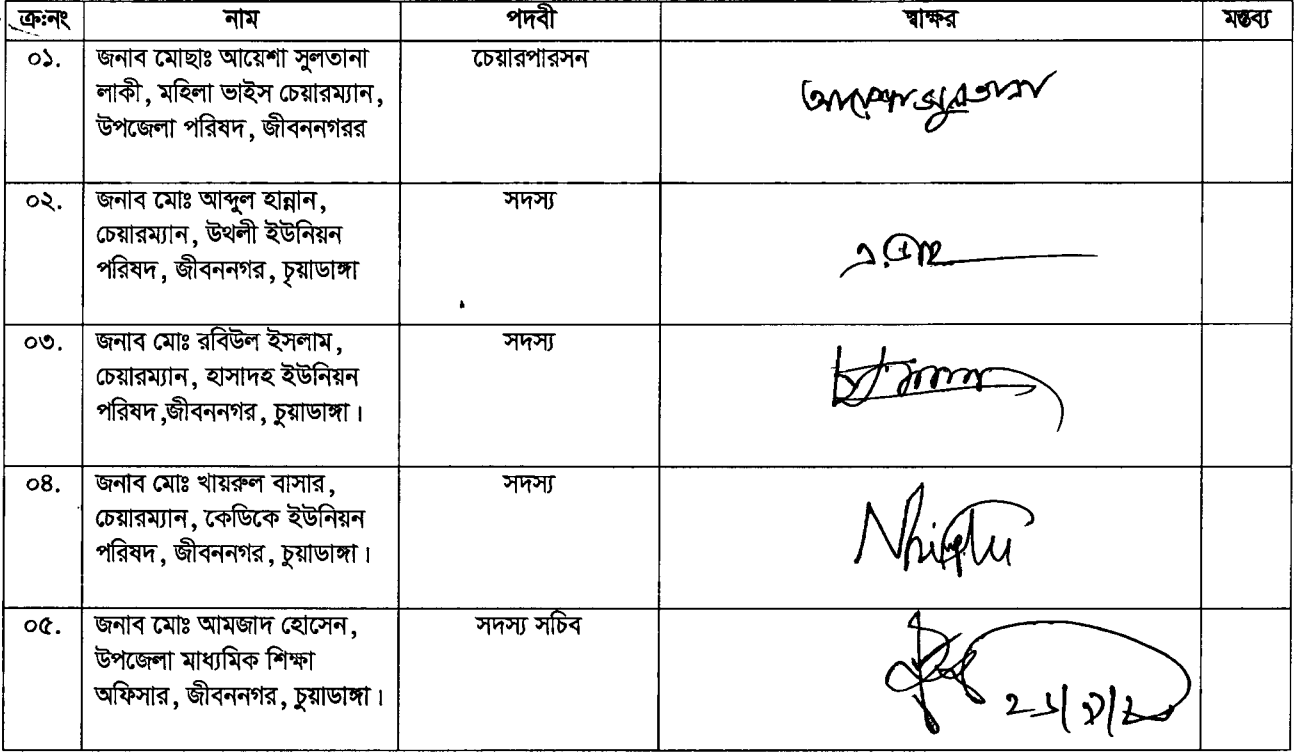 ক্র:নং নাম পদবী স্বাক্ষর মন্তব্য
০১. জনাব মোছাঃ আয়েশা সুলতানা চেয়ারপারসন
লাকী, মহিলা ভাইস চেয়ারম্যান,
উপজেলা পরিষদ, জীবননগরর
আয়েশা সুলতানা
০২. জনাব মোঃ আব্দুল হান্নান, সদস্য
চেয়ারম্যান, উথলী ইউনিয়ন
পরিষদ, জীবননগর, চুয়াডাঙ্গা
০৩. জনাব মোঃ রবিউল ইসলাম, সদস্য
চেয়ারম্যান, হাসাদহ ইউনিয়ন
পরিষদ,জীবননগর, চুয়াডাঙ্গা।
০৪. জনাব মোঃ খায়রুল বাসার, সদস্য
চেয়ারম্যান, কেডিকে ইউনিয়ন
পরিষদ, জীবননগর, চুয়াডাঙ্গা।
০৫. জনাব মোঃ আমজাদ হোসেন, সদস্য সচিব
উপজেলা মাধ্যমিক শিক্ষা
অফিসার, জীবননগর, চুয়াডাঙ্গা।